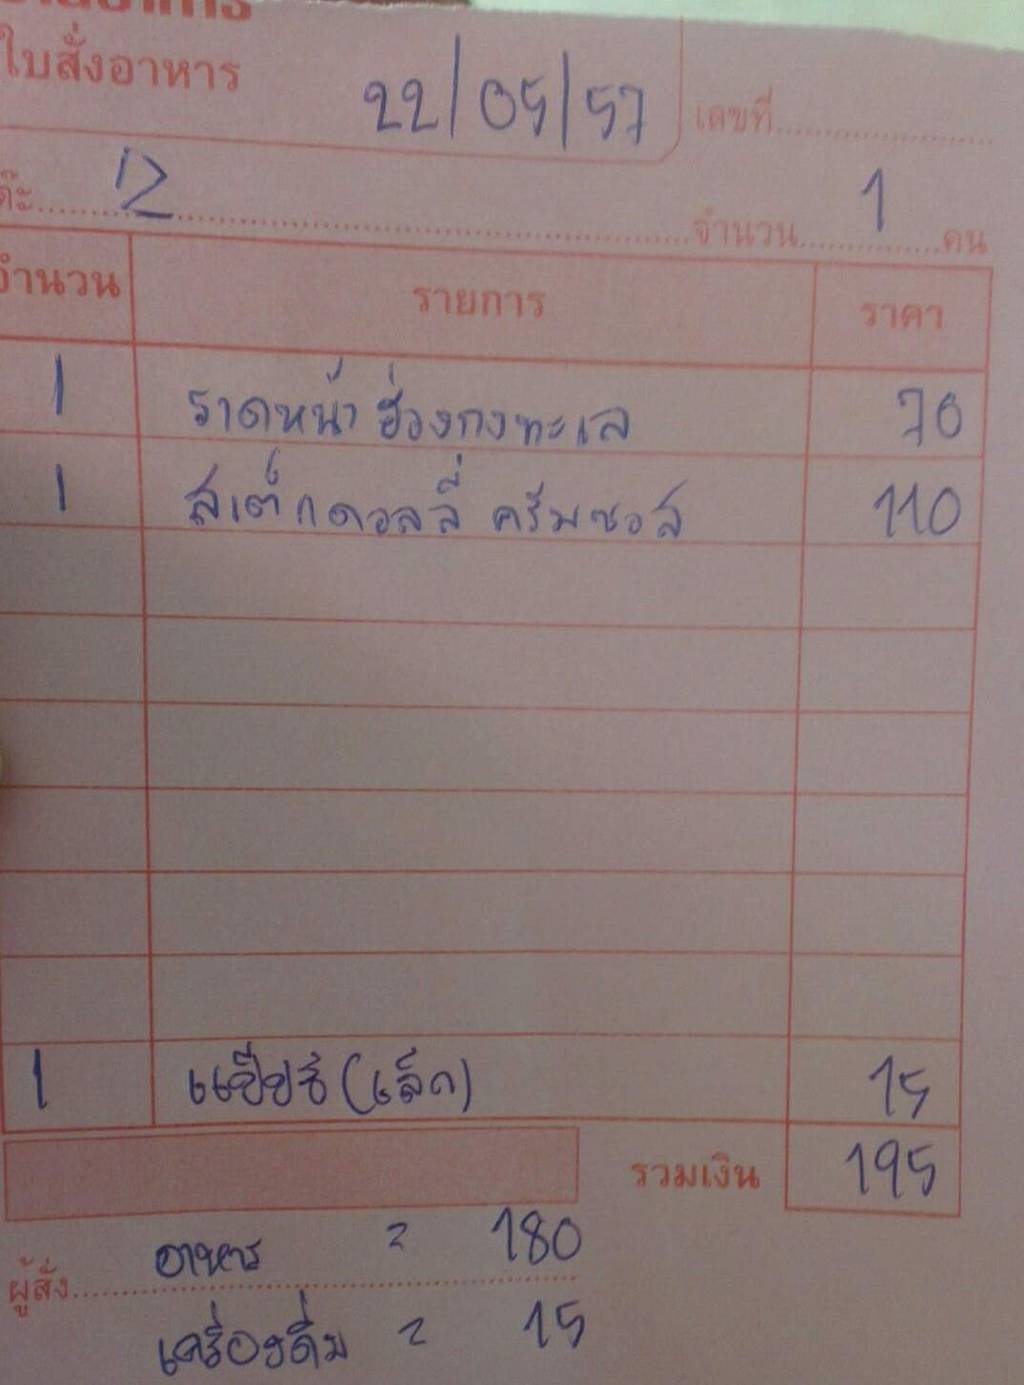 ใบสั่งอาหาร
22/05/57 เลขที่
โต๊ะ 12 จำนวน 1 คน
จำนวน รายการ ราคา
1 ราดหน้าฮ่องกงทะเล 70
1 สเต็กดอลลี่ ครีมซอส 110
1 แป๊ปซี่ (เล็ก) 15
รวมเงิน 195
ผู้สั่ง อาหาร = 180
เครื่องดื่ม = 15